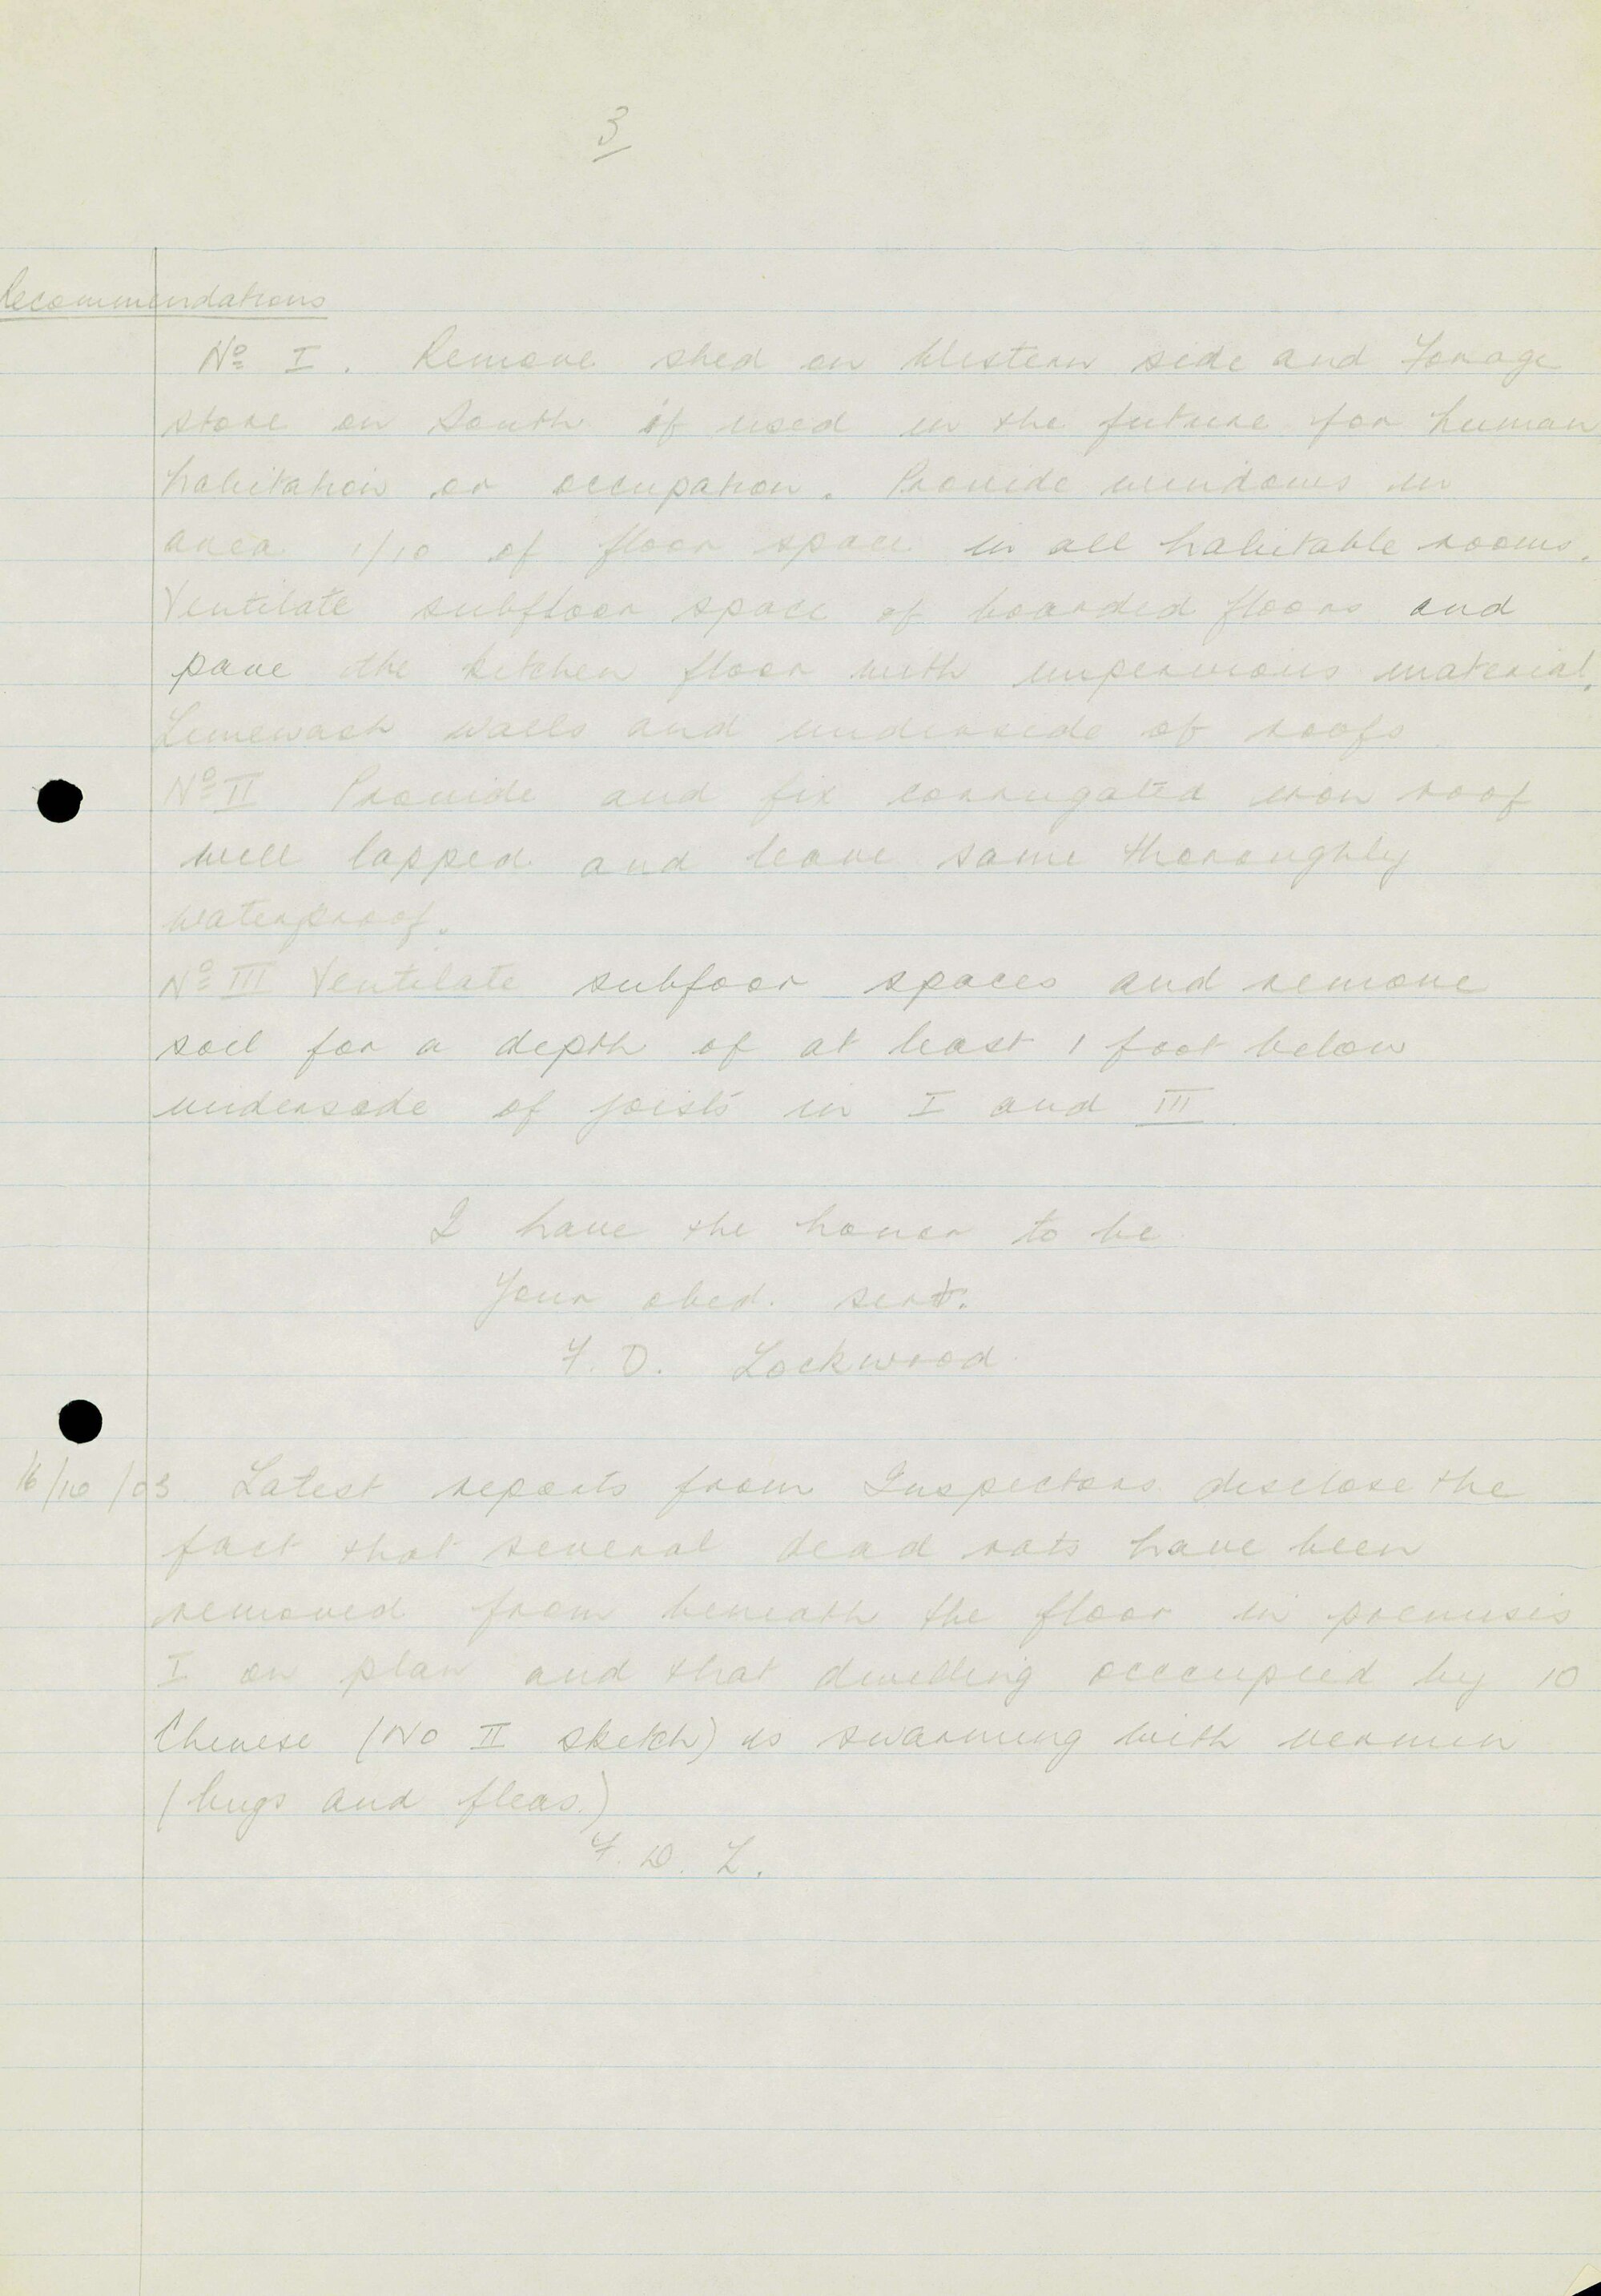 3
Recommendations
Nº I. Remove shed on Western side and Forage
store on South if used in the future for human
habitation or occupation. Provide windows in
area 1/10 of floor space in all habitable rooms.
Ventilate subfloor space of boarded floors and
pave the kitchen floor with impervious material.
Limewash walls and underside of roofs
Nº II Provide and fix corrugated iron roof
well lapped and leave same thoroughly
waterproof.
Nº III Ventilate subfoor spaces and remove
soil for a depth of at least 1 foot below
underside of joists in I and III
I have the honor to be
Your obed. servt.
F. D. Lockwood.
16/10/03 Latest reports from Inspectors disclose the
fact that several dead rats have been
removed from beneath the floor in premisis
I on plan and that dwelling occcupied by 10
Chinese (No II sketch) is swarming with vermin
(bugs and fleas.)
F. D. L.